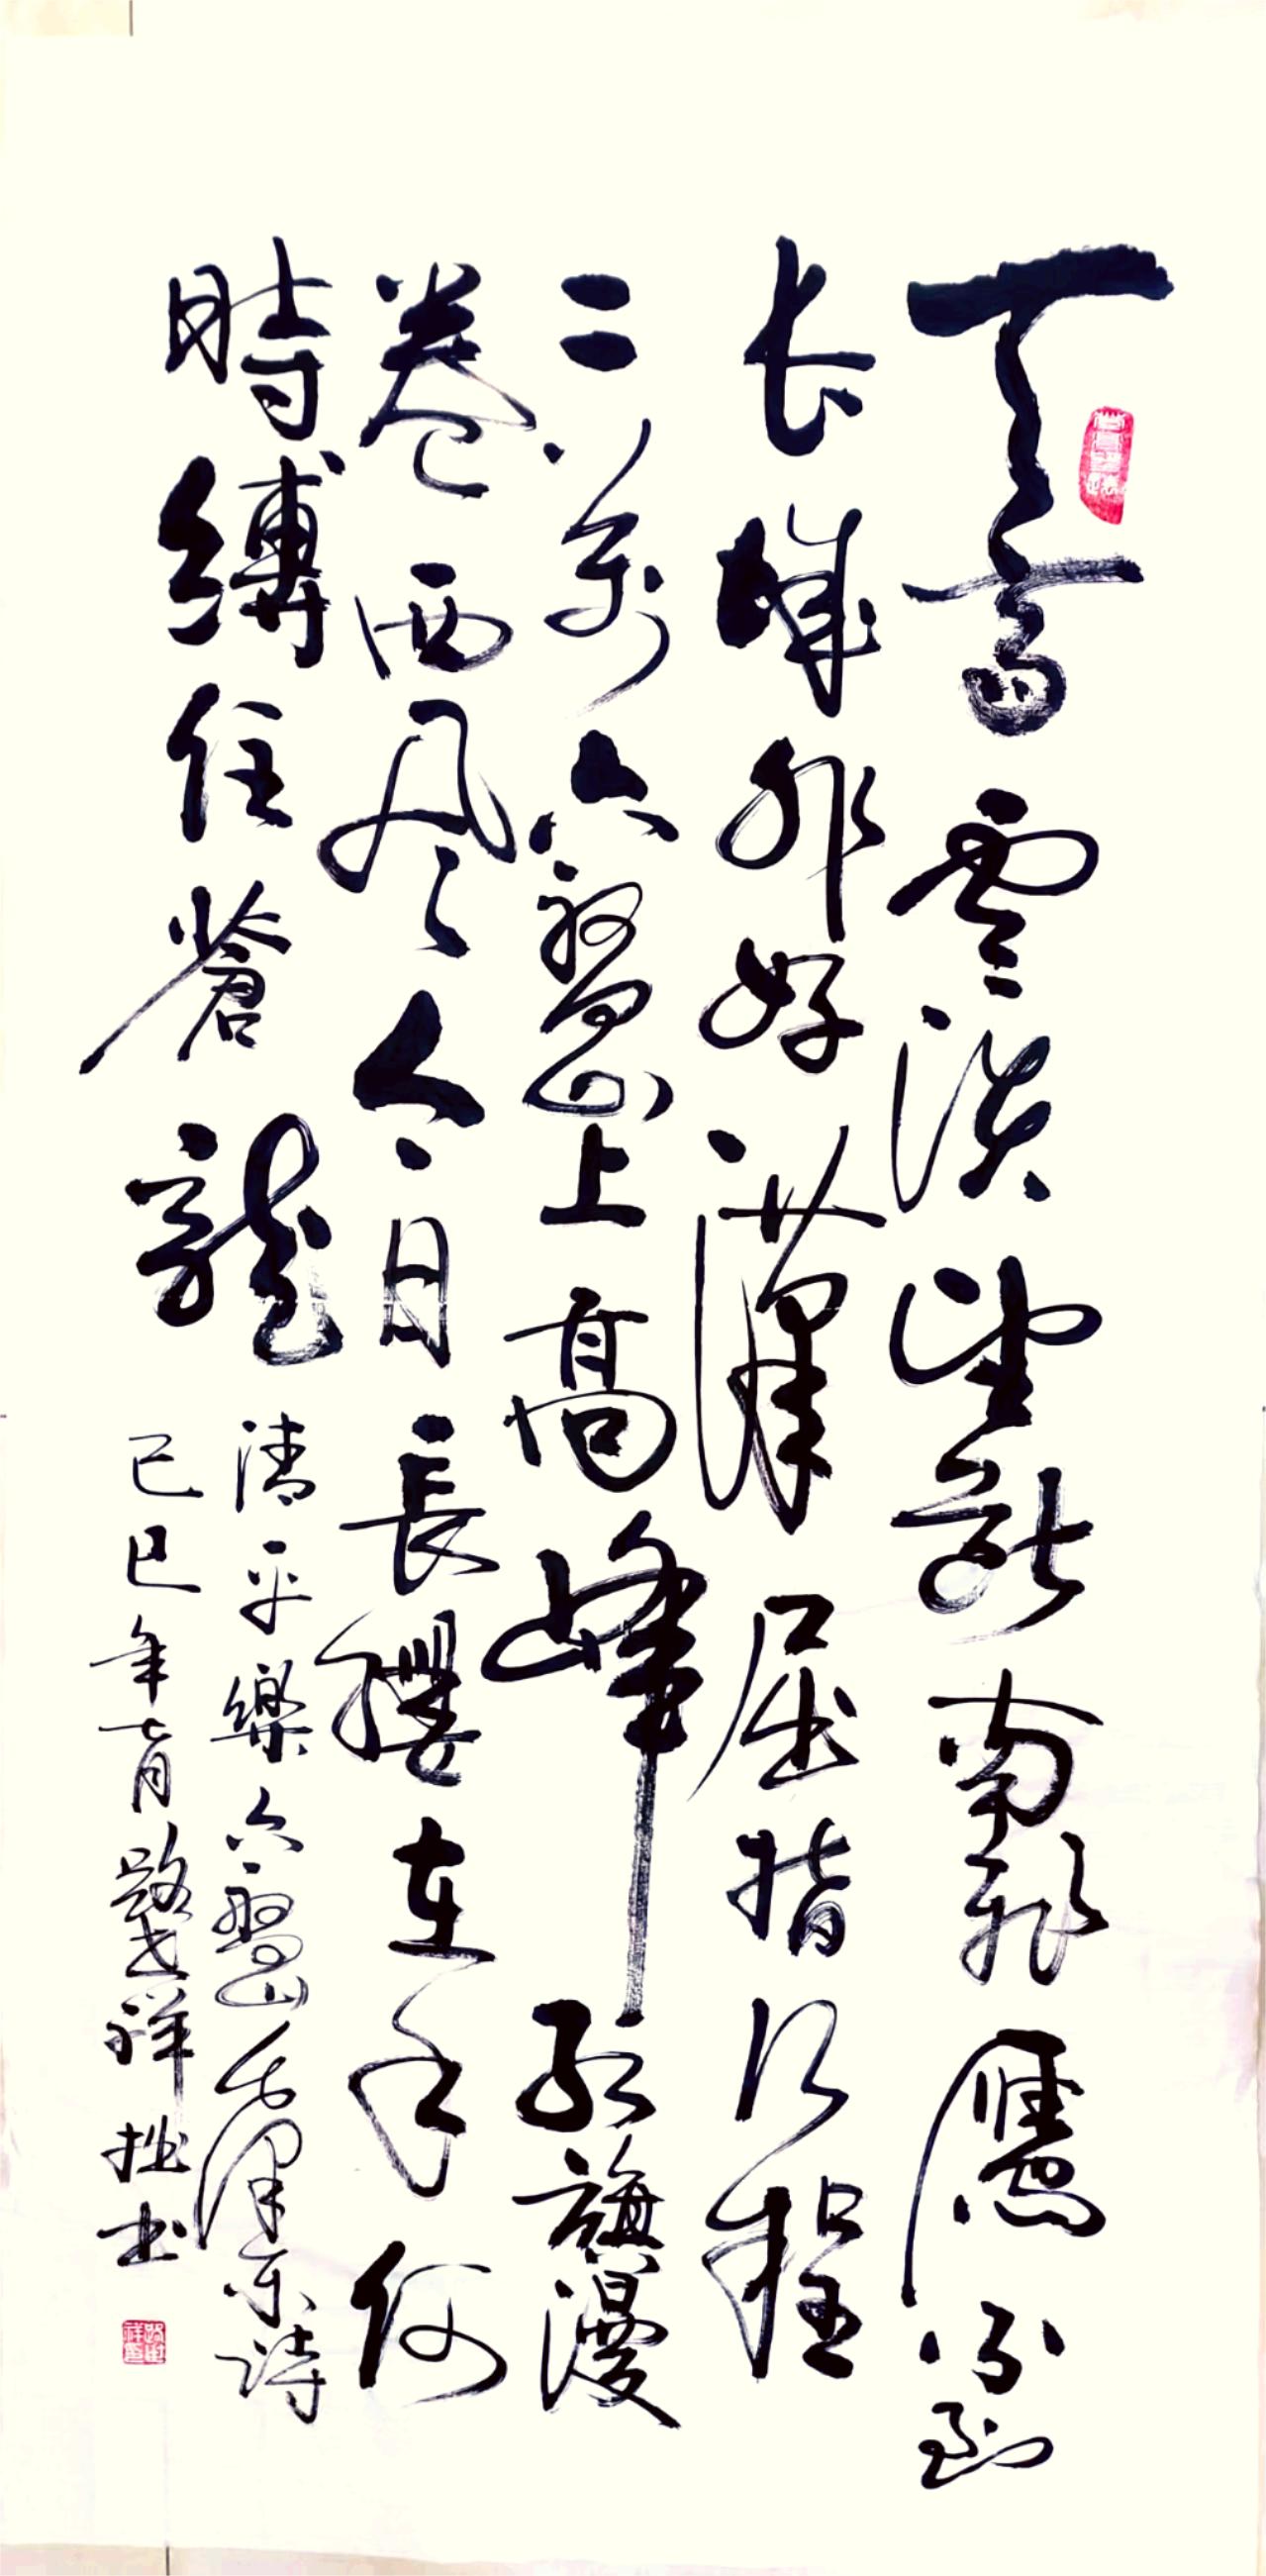 天高雲淡望斷南飛鴈不到
长城非好漢屈指行程
二萬六盤山上高峰紅旗漫
卷西風今日長纓在手何
時縛住蒼龍
清平樂六盤山毛澤東詩
己巳年七月路世祥拙书